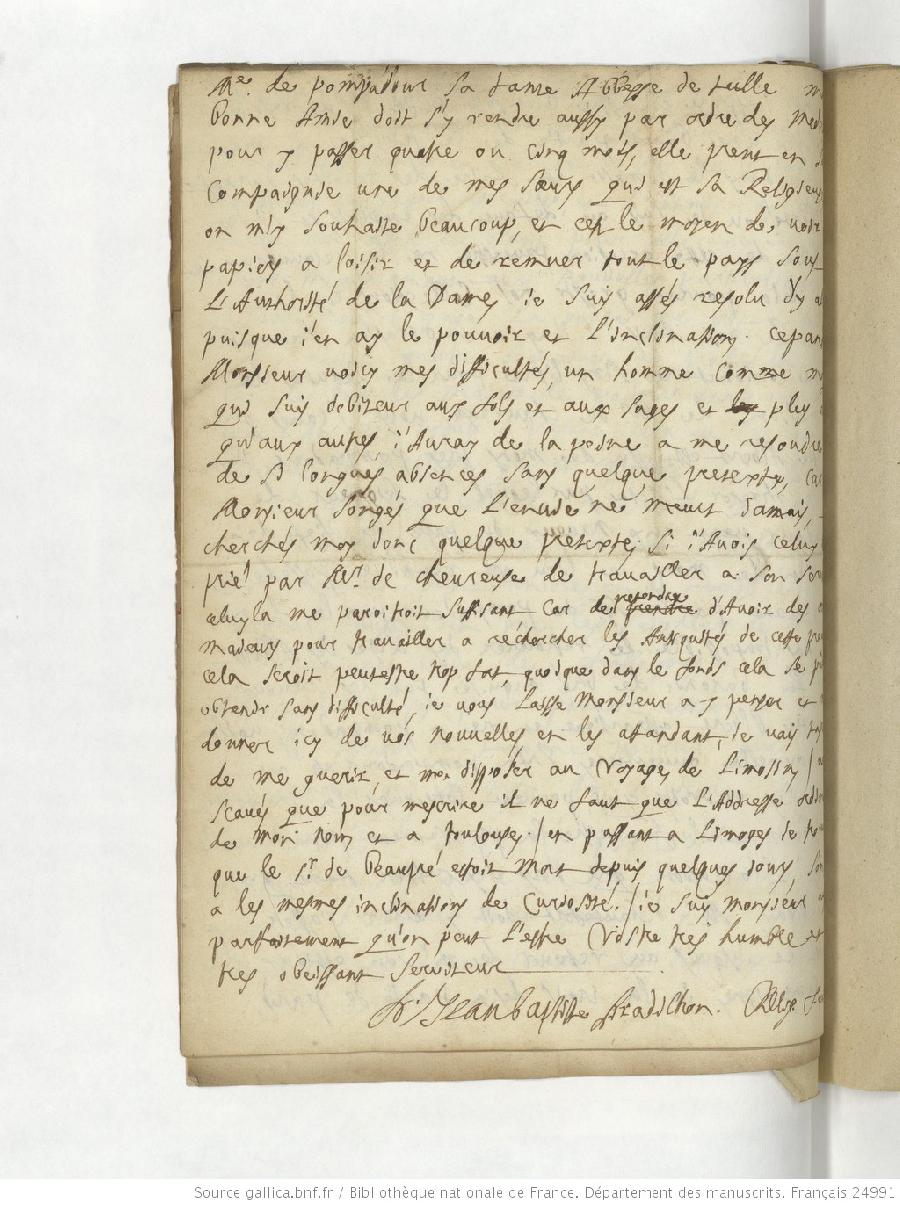 Me. de pompadour sa tante Abbesse de tulle m
bonne Amie doit s'y rendre aussy par ordre des med
pour y passer quatre ou cinq mois, elle prent en s
Compaignie une de mes sœurs qui est sa Religieus
on m'y souhaite beaucoup, et cest le moyen de voir
papiers a loisir et de remuer tout le pays sous
L'Authorité de la Dame, ie suis assés resolu d'y a
puisque i'en ay le pouvoir et l'inclination. cepan
Monsieur voicy mes difficultés, un homme comme m
qui suis debiteur aux fols et aux sages et plus
qu'aux autres, i'Auray de la peine a me resoudre
de si longues absences sans quelque pretexte, car
Monsieur songés que l'envie ne meurt Jamais,
cherchés moy donc quelque pretexte, si i'Avois celuy
prié par Mr. de chevreuse de travailler a son ser
celuyla me paroitroit suffisant Car de prendre pretendre d'Avoir des
madeurs pour travailler a rechercher les Antiquités de cette pro
cela seroit peutestre trop fort, quoique dans le fonds cela se p
obtenir sans difficulté, ie vous laisse Monsieur a y penser et
donner icy de vos nouvelles et les attandant, ie vais
de me guerir, et me disposer au Voyage de Limosin /
scavés que pour mescrire il ne faut que l'Addresse
de mon nom et a toulouse. / en passant a Limoges ie
que le sr. de Beaupré estoit mort depuis quelques iours, son
a les mesmes inclinations de curiosité. / ie suis monsieur
parfaitement qu'on peut l'estre Vostre tres humble et
tres obeissant serviteur
fr. Jean baptiste Pradilhon. Relig.
Source gallica.bnf.fr / Bibliothèque nationale de France. Département des manuscrits. Français 24991